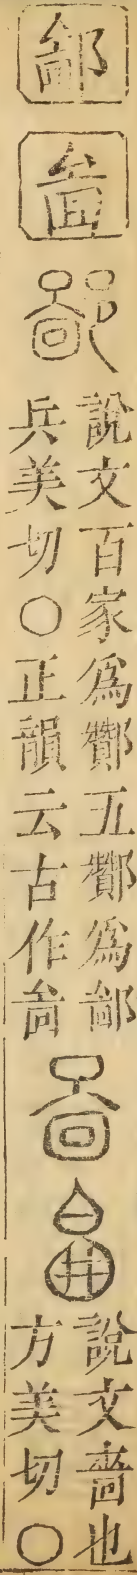 鄙
啚
說文百家爲酇五酇爲鄙
兵美切○正韻云古作啚
說文嗇也
方美切○